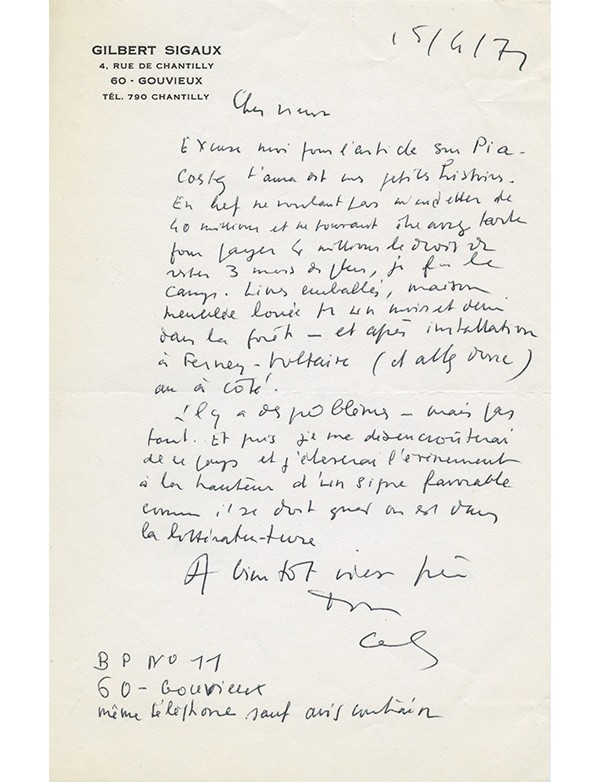 GILBERT SIGAUX
4, RUE DE CHANTILLY
60 - GOUVIEUX
TÉL. 790 CHANTILLY
15/4/71
Cher vieux
Excuse moi pour l'article sur Pia-
t'aura dit mes petits histoires.
En bref ne voulant pas m'endetter de
40 millions et ne pouvant
pour payer 4 millions le droit de
rester 3 mois de plus, je fous le
camp. Livres emballés, maison
meublée louée pr un mois et demi
dans la forêt — et après installation
à Ferney-Voltaire (d
ou à côté.
il y a des problèmes — mais pas
tant. Et puis je me désencroûterai
de ce pays et j'élèverai l'événement
à la hauteur d'un signe favorable
comme il se doit quand on est dans
la littérature
A bientôt vieux
BP NO 11
60 - Gouvieux
même téléphone sauf avis contraire